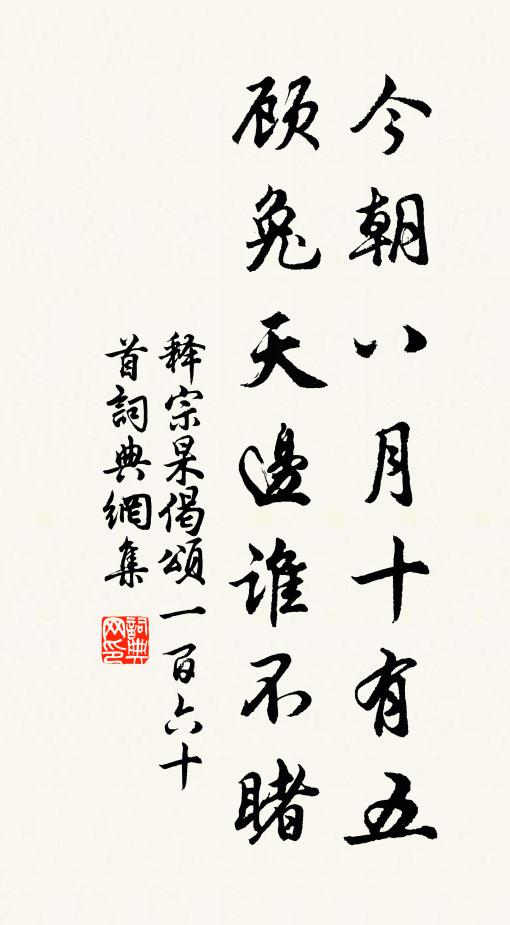 今朝八月十有五
顾兔天邊谁不睹
释宗杲偈頌一百六十
首詞典網集
詞典网印